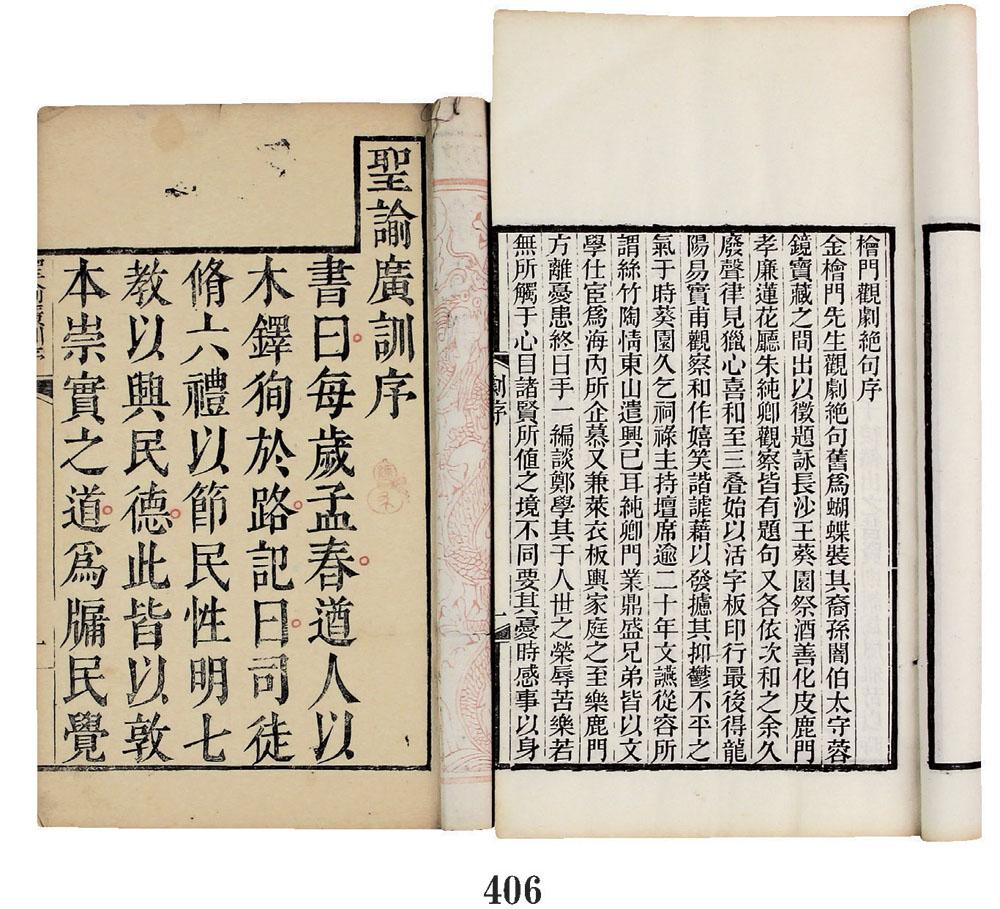 聖諭廣訓序
書曰每歲孟春遒人以
木鐸徇於路記曰司徒
脩六禮以節民性明七
教以興民德此皆以敦
本崇實之道為牖民覺
檜門觀劇絕句序
金檜門先生觀劇絕句舊為蝴蝶裝其裔孫闇伯太守蓉
鏡寶藏之間出以徵題詠長沙王葵園祭酒善化皮鹿門
孝廉蓮花廳朱純卿觀察皆有題句又各依次和之余久
廢聲律見獵心喜和至三叠始以活字板印行最後得龍
陽易實甫觀察和作嬉笑諧謔藉以發攄其抑鬱不平之
氣于時葵園久乞祠祿主持壇席逾二十年文讌從容所
謂絲竹陶情東山遣興已耳純卿門業鼎盛兄弟皆以文
學仕宦為海內所企慕又兼萊衣板輿家庭之至樂鹿門
方離憂患終日手一編談鄭學其于人世之榮辱苦樂若
無所觸于心目諸賢所値之境不同要其憂時感事以身
劇序
一
406